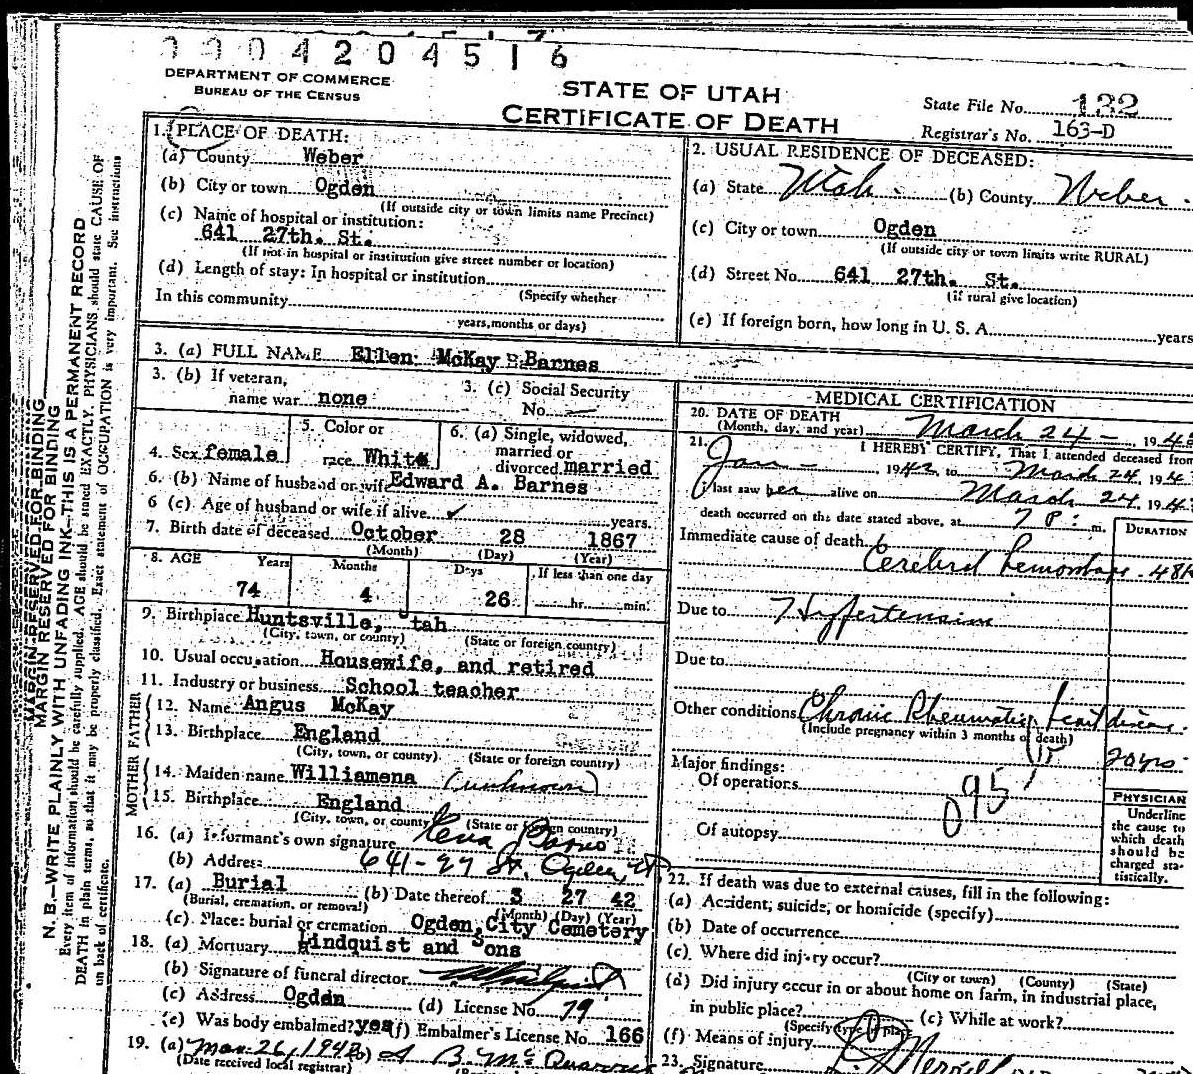 0004204516
DEPARTMENT OF COMMERCE
BUREAU OF THE CENSUS
STATE OF UTAH
CERTIFICATE OF DEATH
State File No. 132
Registrar's No. 163-D
1. PLACE OF DEATH:
(a) County Weber
(b) City or town Ogden
(If outside city or town limits name Precinct)
(c) Name of hospital or institution:
641 27th. St.
(If not in hospital or institution give street number or location)
(d) Length of stay: In hospital or institution
(Specify whether
In this community
years, months or days)
2. USUAL RESIDENCE OF DECEASED:
(a) State Utah (b) County Weber
(c) City or town Ogden
(If outside city or town limits write RURAL)
(d) Street No. 641 27th. St.
(if rural give location)
(e) If foreign born, how long in U. S. A. years
3. (a) FULL NAME Ellen McKay Barnes
3. (b) If veteran,
name war none
3. (c) Social Security
No. —
4. Sex female
5. Color or
race White
6. (a) Single, widowed,
married or
divorced married
6. (b) Name of husband or wife Edward A. Barnes
6 (c) Age of husband or wife if alive ✓ years.
7. Birth date of deceased October 28 1867
(Month) (Day) (Year)
8. AGE Years Months Days If less than one day
74 4 26 hr. min.
9. Birthplace Huntsville, Utah
(City, town, or county) (State or foreign country)
10. Usual occupation Housewife, and retired
11. Industry or business School teacher
FATHER
12. Name Angus McKay
13. Birthplace England
(City, town, or county) (State or foreign country)
MOTHER
14. Maiden name Williamena (unknown)
15. Birthplace England
(City, town, or county) (State or foreign country)
16. (a) Informant's own signature Barnes
(b) Address 641-27 St. Ogden, Ut
17. (a) Burial (b) Date thereof 3 27 42
(Burial, cremation, or removal) (Month) (Day) (Year)
(c) Place: burial or cremation Ogden City Cemetery
18. (a) Mortuary Lindquist and Sons
(b) Signature of funeral director
(c) Address Ogden (d) License No. 79
(e) Was body embalmed? yes (f) Embalmer's License No. 166
19. (a) Mar. 26, 1942 (b)
(Date received local registrar)
MEDICAL CERTIFICATION
20. DATE OF DEATH
(Month, day, and year) March 24 - 194
21. I HEREBY CERTIFY, That I attended deceased from
Jan - 1942 to March 24, 194
I last saw her alive on March 24, 194
death occurred on the date stated above, at 7 P. m.
DURATION
Immediate cause of death
Cerebral hemorrhage 48
Due to Hypertension
Due to
Other conditions Chronic Rheumatic heart disease
(Include pregnancy within 3 months of death)
20 yrs
Major findings:
Of operations
095
Of autopsy
PHYSICIAN
Underline
the cause to
which death
should be
charged sta-
tistically.
22. If death was due to external causes, fill in the following:
(a) Accident, suicide, or homicide (specify)
(b) Date of occurrence
(c) Where did injury occur?
(City or town) (County) (State)
(d) Did injury occur in or about home on farm, in industrial place,
in public place? (e) While at work?
(Specify type of place)
(f) Means of injury
23. Signature
MARGIN RESERVED FOR BINDING
MARGIN RESERVED FOR BINDING
N. B.—WRITE PLAINLY WITH UNFADING INK—THIS IS A PERMANENT RECORD
Every item of information should be carefully supplied. AGE should be stated EXACTLY. PHYSICIANS should state CAUSE OF
DEATH in plain terms, so that it may be properly classified. Exact statement of OCCUPATION is very important. See instructions
on back of certificate.